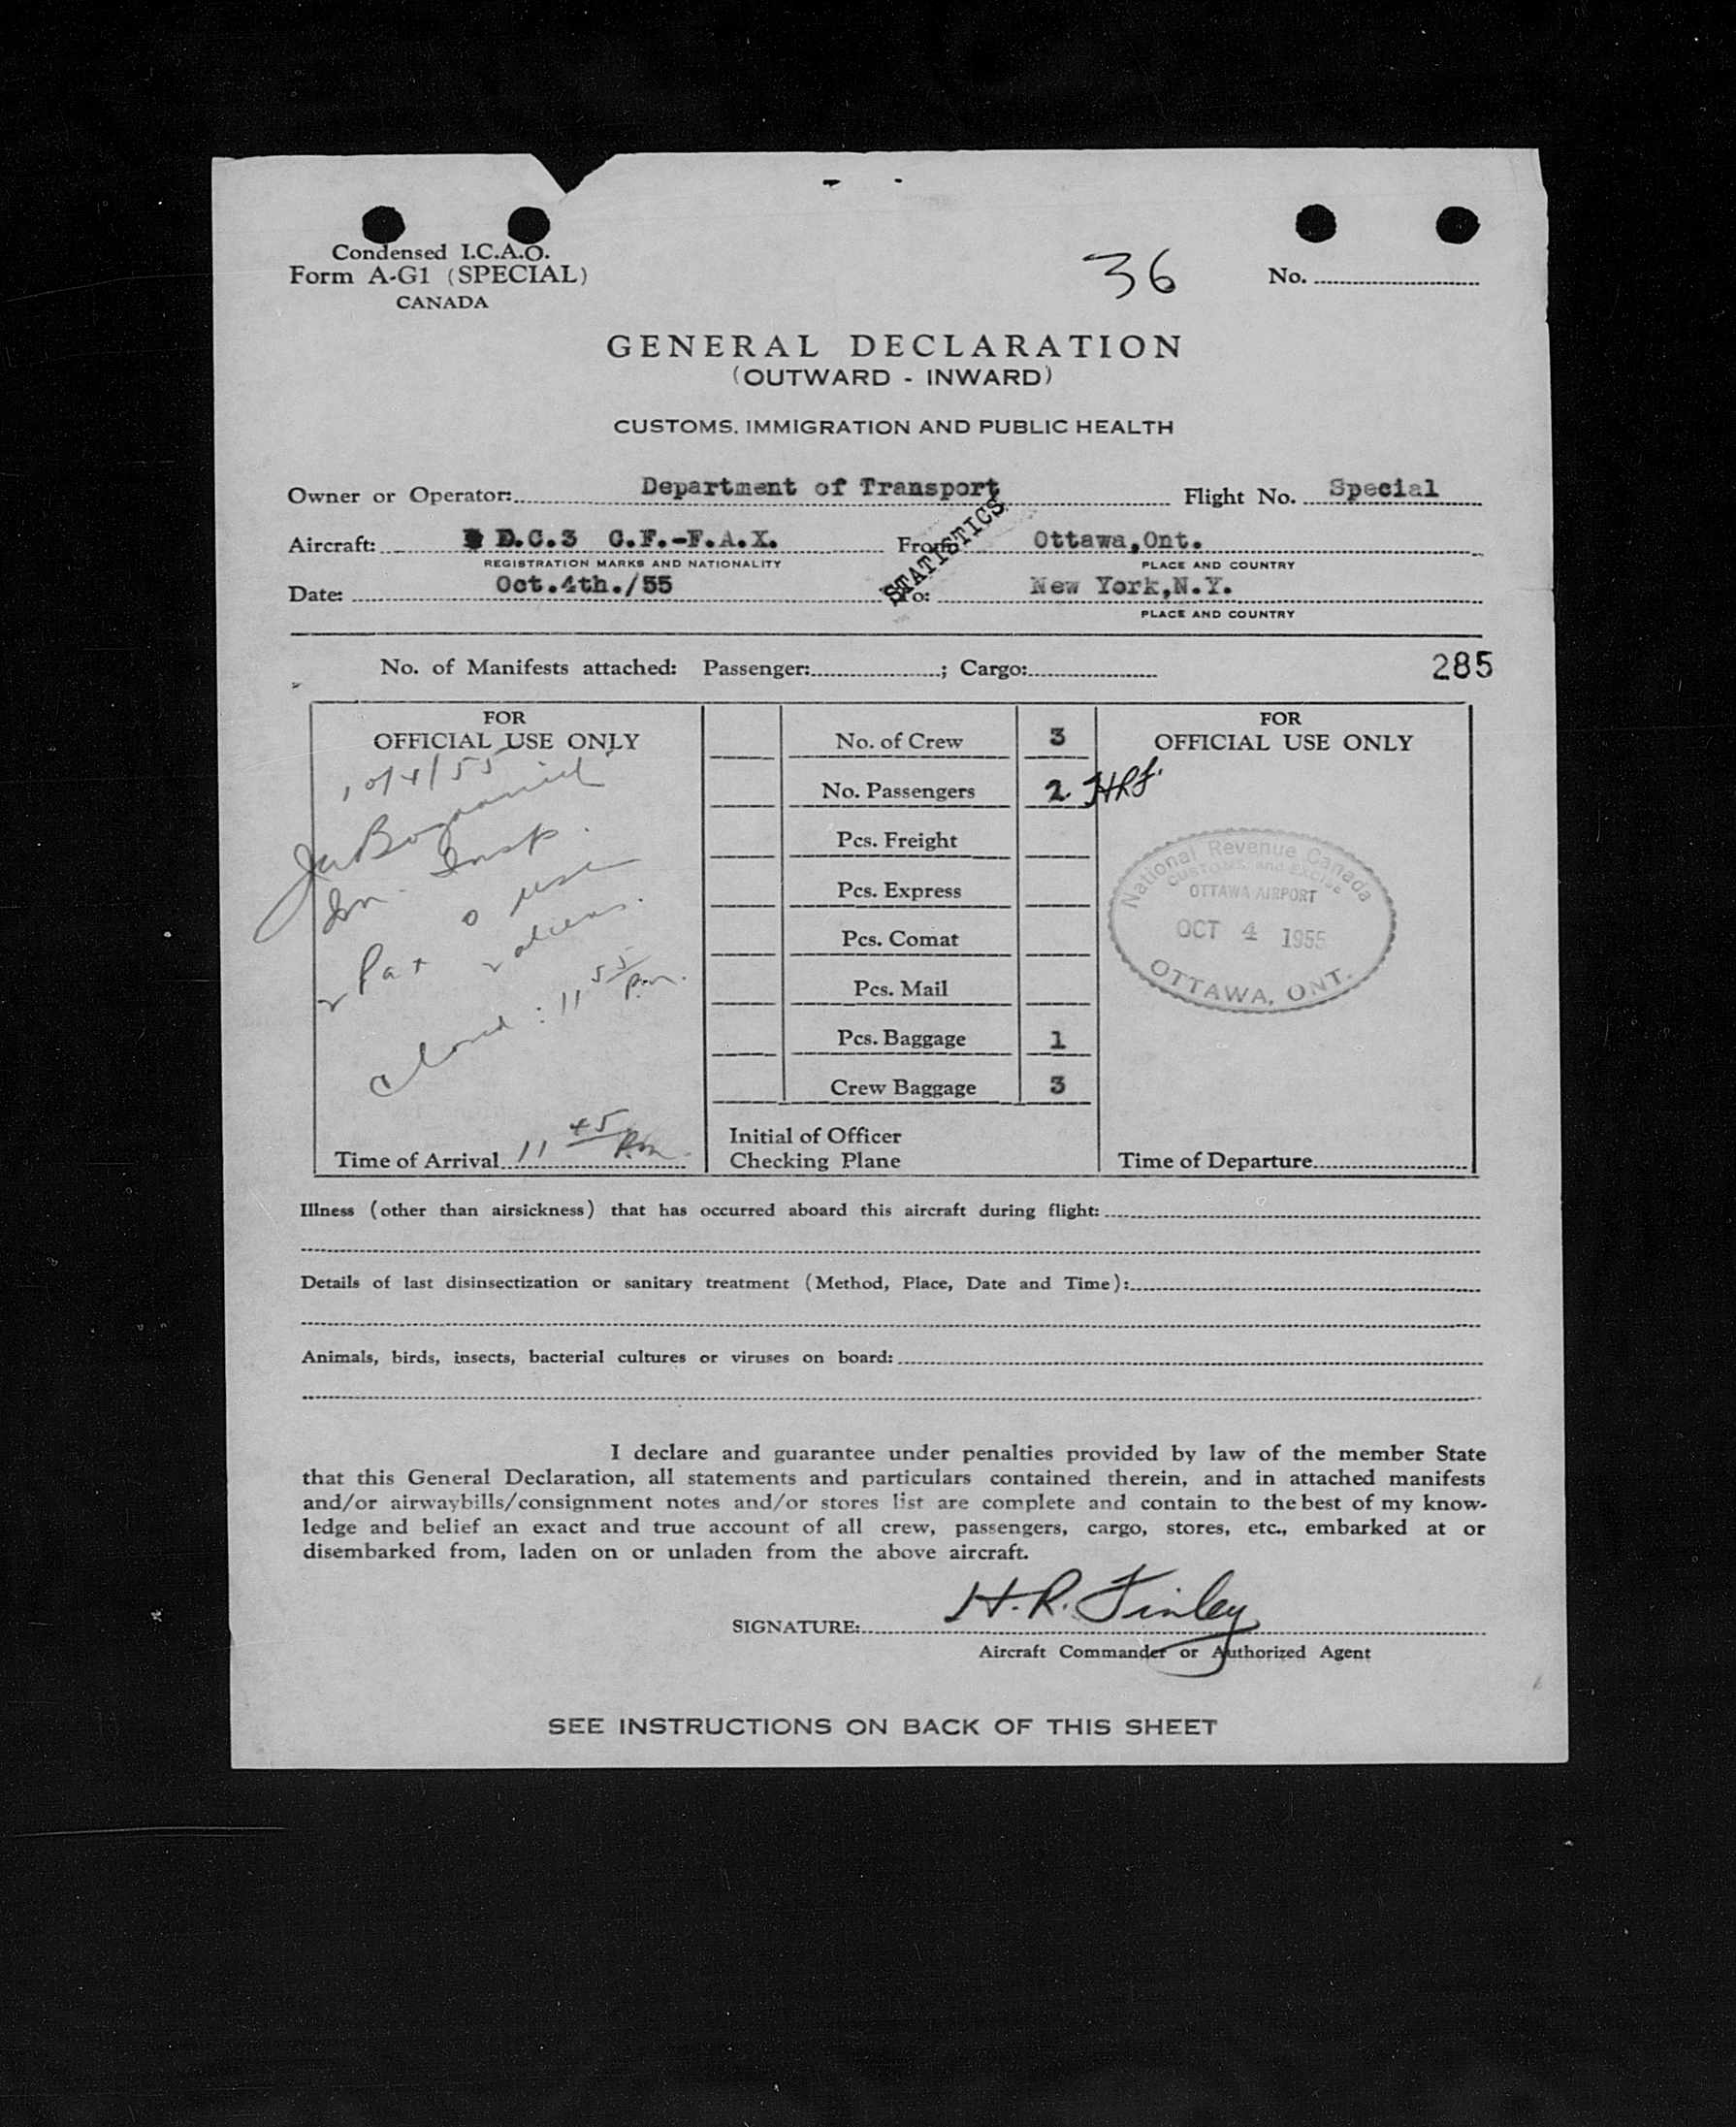 Condensed I.C.A.O.
Form A-G1 (SPECIAL)
CANADA
36
No.
GENERAL DECLARATION
(OUTWARD - INWARD)
CUSTOMS, IMMIGRATION AND PUBLIC HEALTH
Owner or Operator: Department of Transport Flight No. Special
Aircraft: D.C.3 C.F.-F.A.X. From: Ottawa,Ont.
REGISTRATION MARKS AND NATIONALITY PLACE AND COUNTRY
STATISTICS
Date: Oct.4th./55 To: New York,N.Y.
PLACE AND COUNTRY
No. of Manifests attached: Passenger: ; Cargo: 285
FOR
OFFICIAL USE ONLY
10/4/55
Im. Insp.
2 Pax 0 usc
2 aliens.
Closed: 11 55 P.m.
Time of Arrival 11 45 P.m.
No. of Crew 3
No. Passengers 2 HRF.
Pcs. Freight
Pcs. Express
Pcs. Comat
Pcs. Mail
Pcs. Baggage 1
Crew Baggage 3
Initial of Officer
Checking Plane
FOR
OFFICIAL USE ONLY
National Revenue Canada
CUSTOMS and EXCISE
OTTAWA AIRPORT
OCT 4 1955
OTTAWA, ONT.
Time of Departure
Illness (other than airsickness) that has occurred aboard this aircraft during flight:
Details of last disinsectization or sanitary treatment (Method, Place, Date and Time):
Animals, birds, insects, bacterial cultures or viruses on board:
I declare and guarantee under penalties provided by law of the member State
that this General Declaration, all statements and particulars contained therein, and in attached manifests
and/or airwaybills/consignment notes and/or stores list are complete and contain to the best of my know-
ledge and belief an exact and true account of all crew, passengers, cargo, stores, etc., embarked at or
disembarked from, laden on or unladen from the above aircraft.
SIGNATURE: H.R. Finley
Aircraft Commander or Authorized Agent
SEE INSTRUCTIONS ON BACK OF THIS SHEET